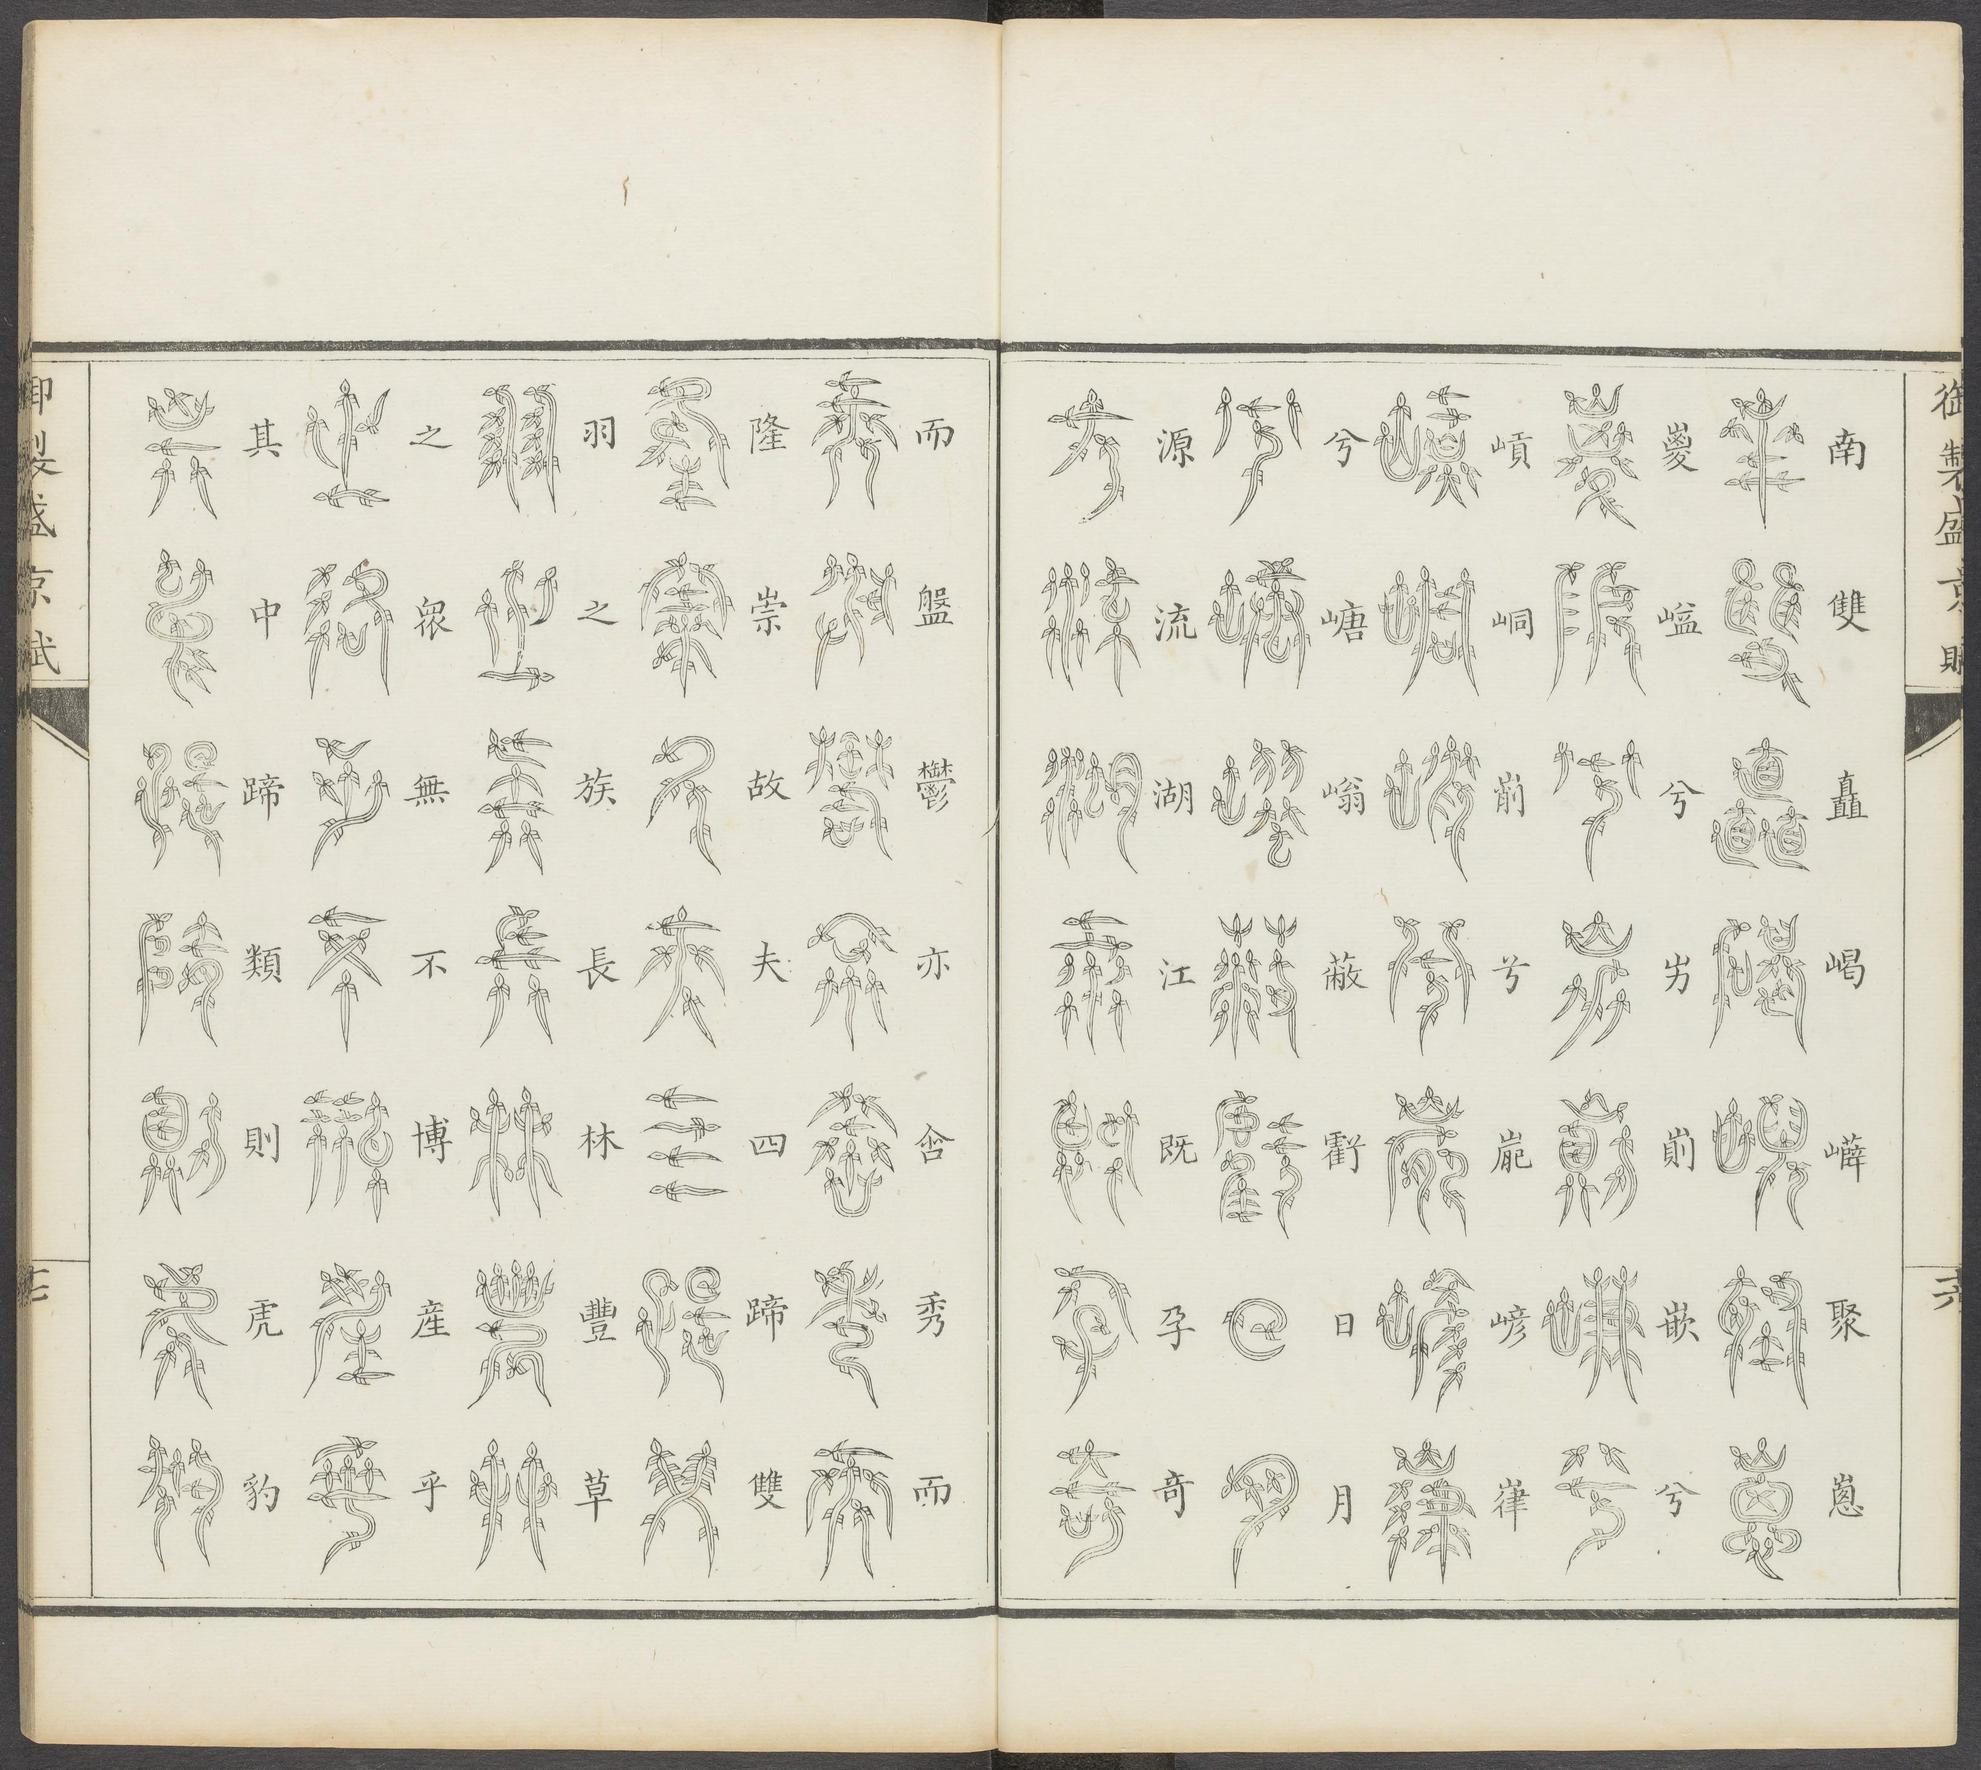 御製盛京賦
六
南雙矗嵑㠎聚蔥
㟎嵫兮屴崱嵌兮
嵿峒嵛兮巃嵃嵂
兮嵣嵡蔽虧日月
源流湖江既孕奇
而盤鬱亦含秀而
隆崇故夫四蹄雙
羽之族長林豐草
之眾無不博產乎
其中蹄類則虎豹
御製盛京賦